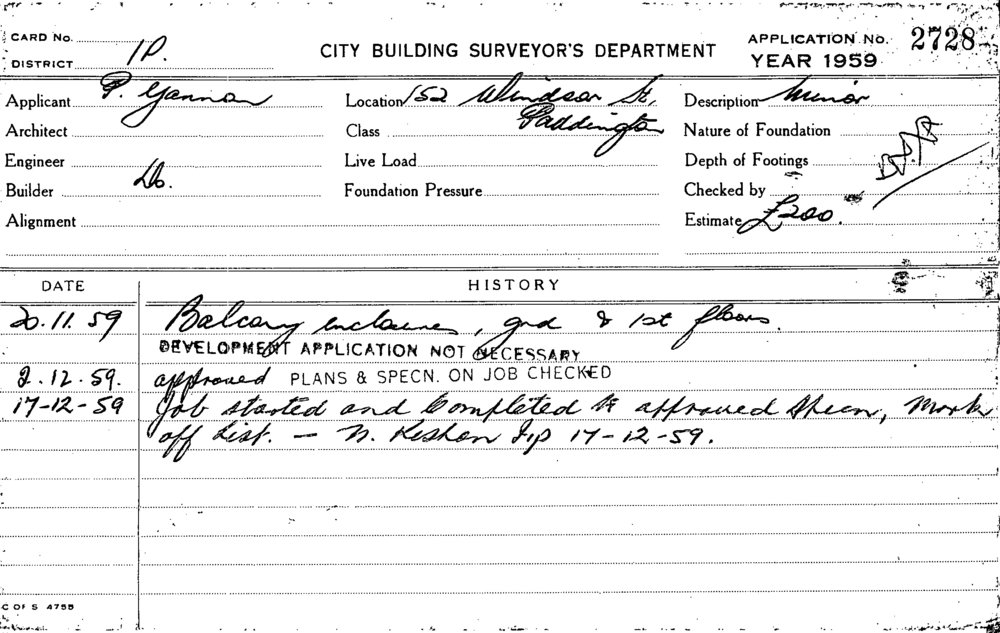 CARD No.
DISTRICT 1P.
CITY BUILDING SURVEYOR'S DEPARTMENT
APPLICATION No. 2728
YEAR 1959
Applicant P. Gannon
Location 152 Windsor St,
Paddington
Description Minor
Architect
Class
Nature of Foundation
Engineer
Live Load
Depth of Footings
Builder Do.
Foundation Pressure
Checked by
Alignment
Estimate £200.
DATE
HISTORY
20.11.59 Balcony enclosures, grd & 1st floors.
DEVELOPMENT APPLICATION NOT NECESSARY
2.12.59. approved PLANS & SPECN. ON JOB CHECKED
17-12-59 Job started and Completed to approved Specn, Mark
off List. — N. 17-12-59.
C OF S 475B